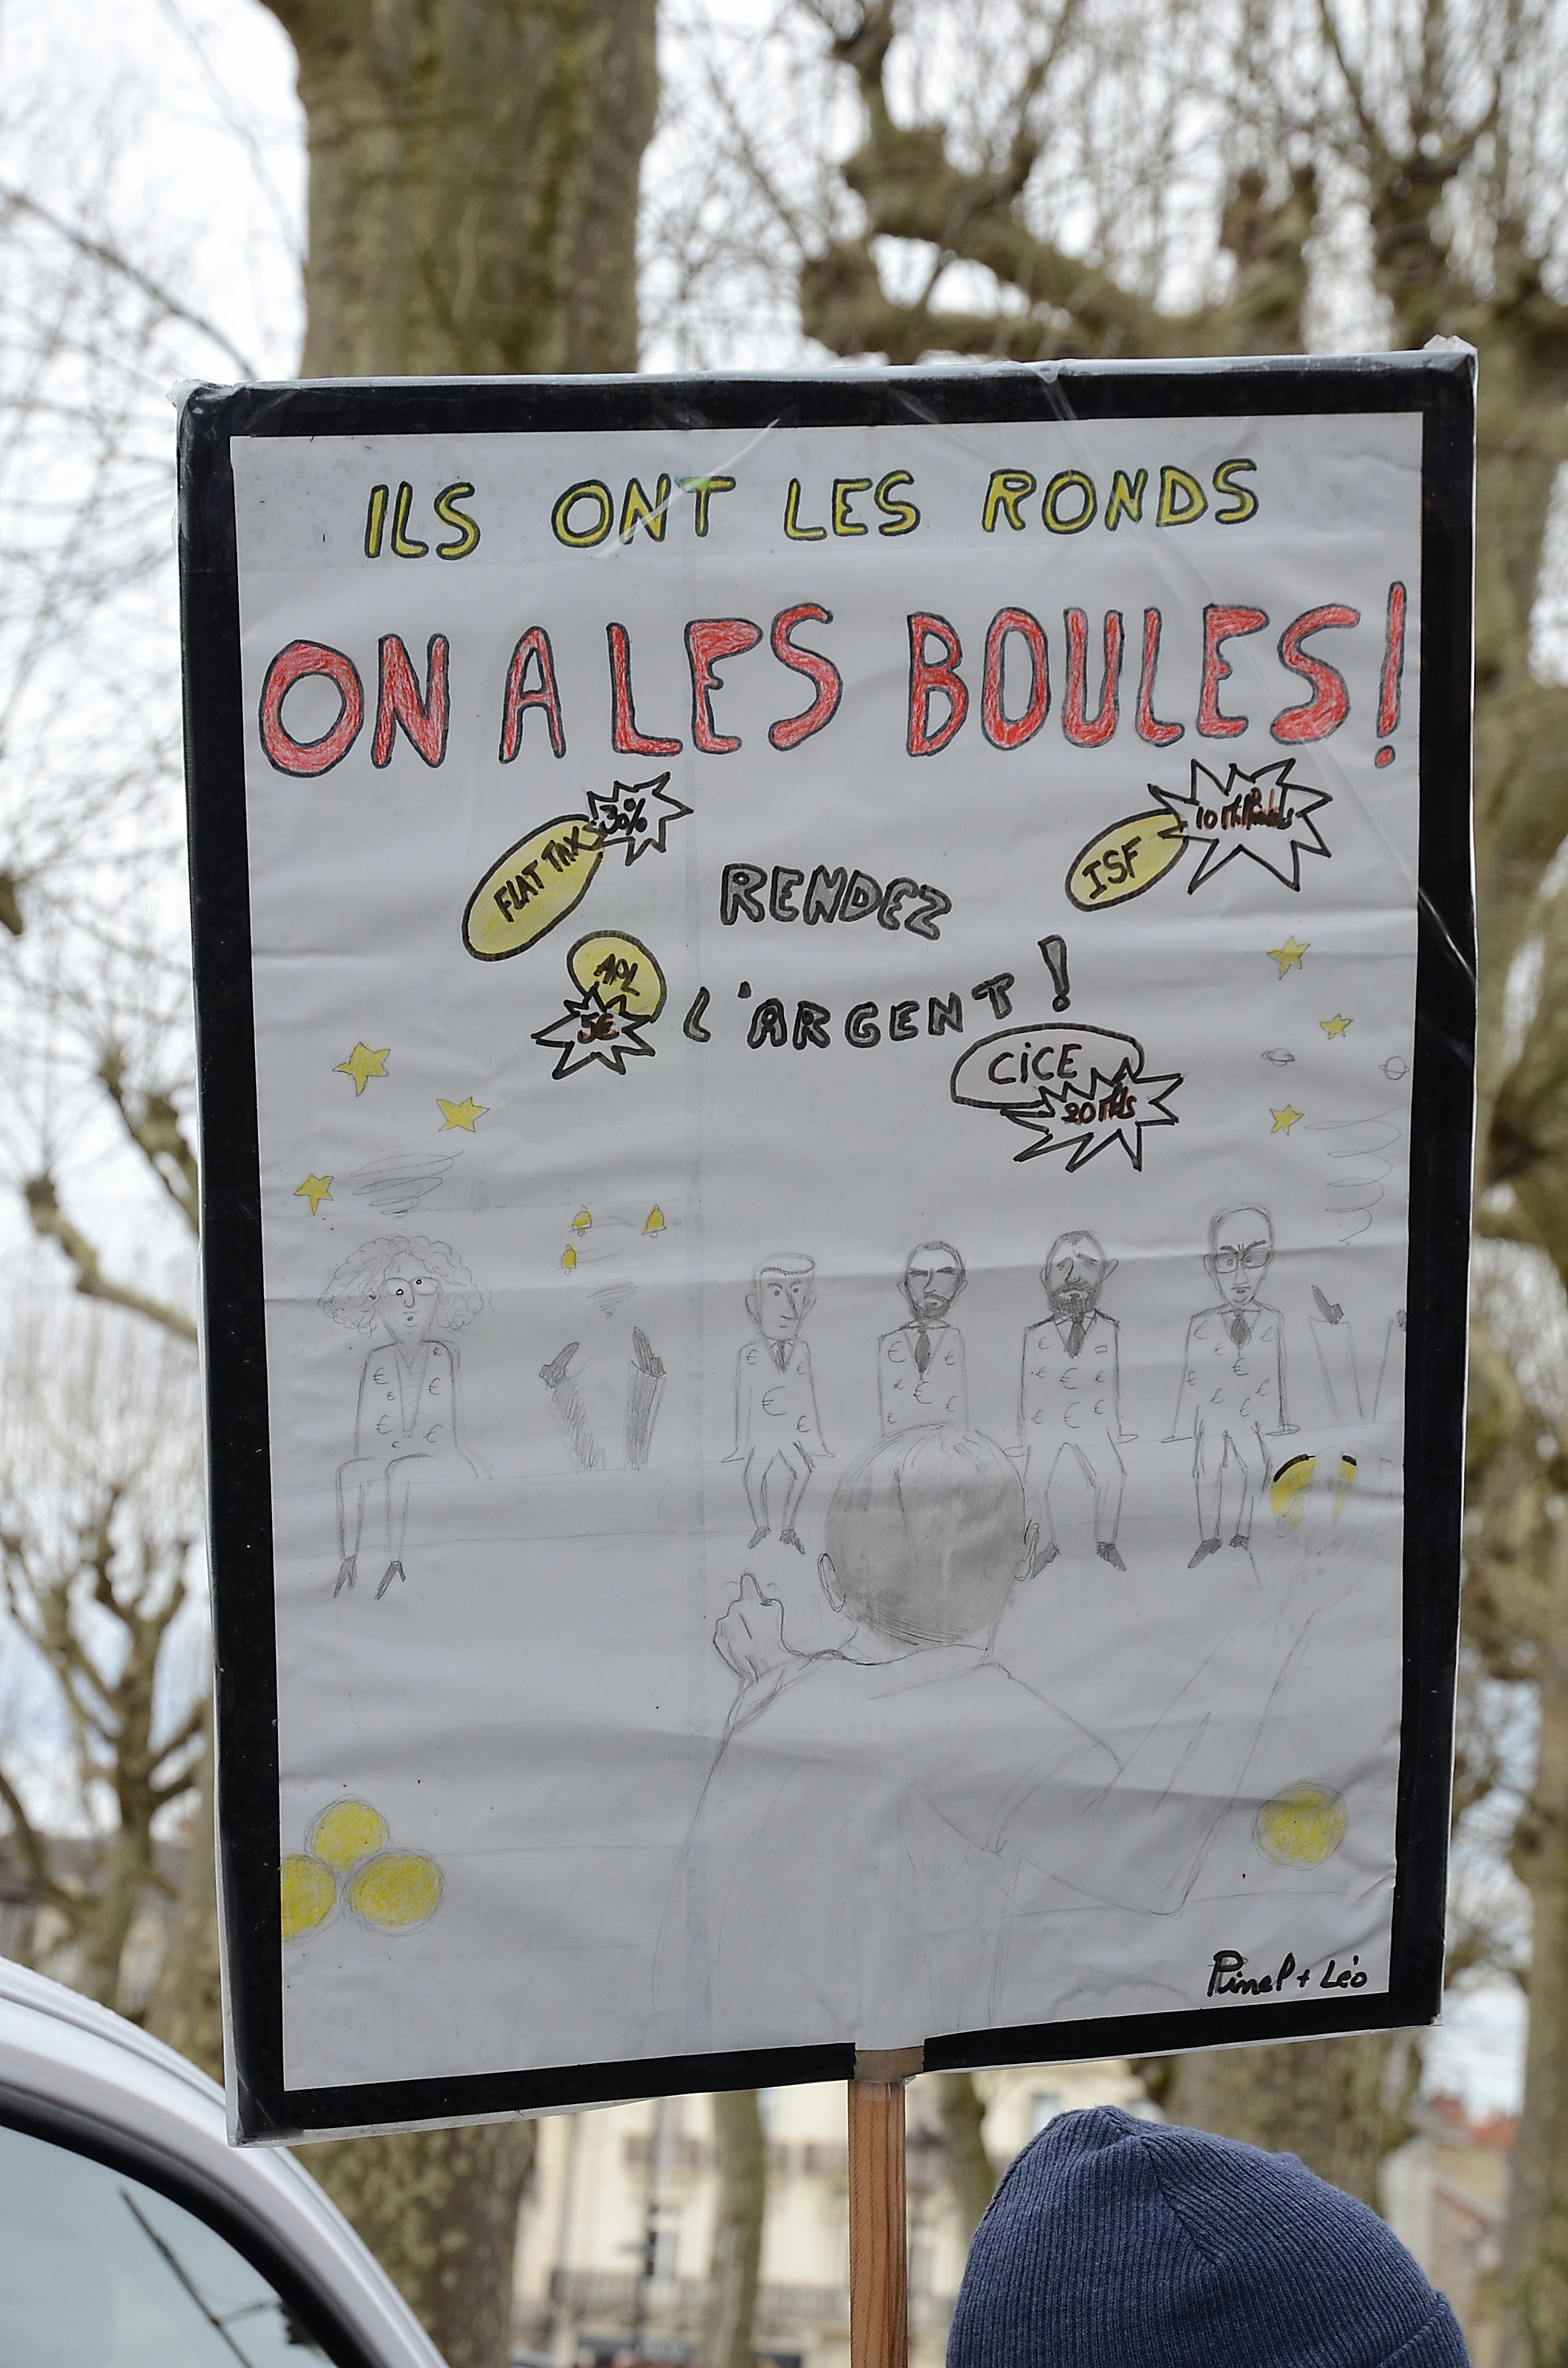 ILS ONT LES RONDS
ON A LES BOULES!
FLAT TAX
30%
ISF
RENDEZ
APL
5€
L'ARGENT!
CiCE
20 Mds
Pinel + Léo